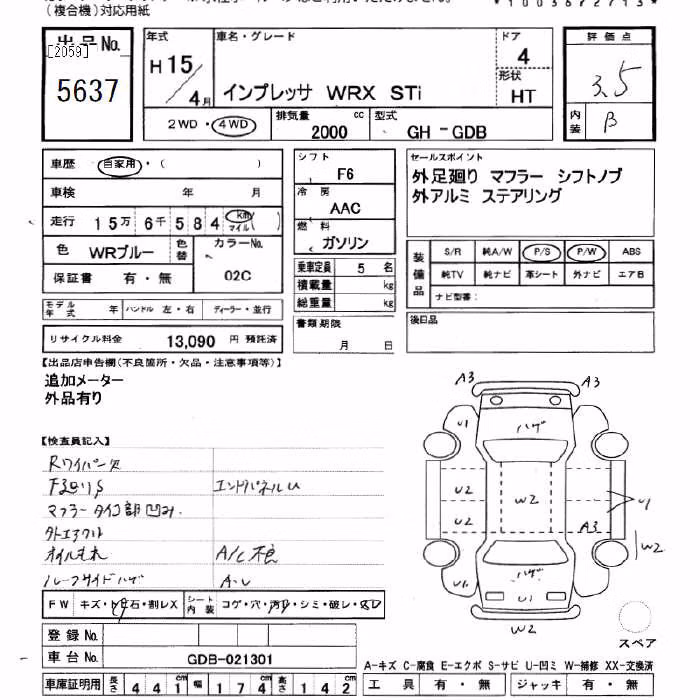 (複合機)対応用紙
出品No.
[2059]
5637
年式
H15/4月
車名・グレード
インプレッサ WRX STi
ドア
4
形状
HT
評価点
3.5
内装
B
2WD・4WD
排気量
2000 cc
型式
GH - GDB
車歴 自家用・( )
車検 年 月
走行 15万6千584 Km マイル ( )
色 WRブルー
色替
カラーNo.
02C
保証書 有・無
シフト
F6
冷房
AAC
燃料
ガソリン
乗車定員 5 名
積載量 kg
総重量 kg
書類期限
月 日
セールスポイント
外足廻り マフラー シフトノブ
外アルミ ステアリング
装備品
S/R 純A/W P/S P/W ABS
純TV 純ナビ 革シート 外ナビ エアB
ナビ型番:
後日品
モデル年式 年 ハンドル 左・右 ディーラー・並行
リサイクル料金 13,090 円 預託済
【出品店申告欄(不良箇所・欠品・注意事項等)】
追加メーター
外品有り
【検査員記入】
Rワイパー欠
F廻りS
エンドパネルU
マフラータイコ部凹み.
外エアクル
オイルもれ
A/C不良
ルーフサイドハゲ
A-U
A3 A3
U1 ハゲ
U2 W2 U1
U2 A3
W2
U1 ハゲ
U1
W2
スペア
FW キズ・ヒ石・割レX
シート内装 コゲ・穴・汚レ・シミ・破レ・スレ
登録No.
車台No. GDB-021301
車庫証明用 長さ 441cm 幅 174cm 高さ 142cm
A-キズ C-腐食 E-エクボ S-サビ U-凹ミ W-補修 XX-交換済
工具 有・無 ジャッキ 有・無